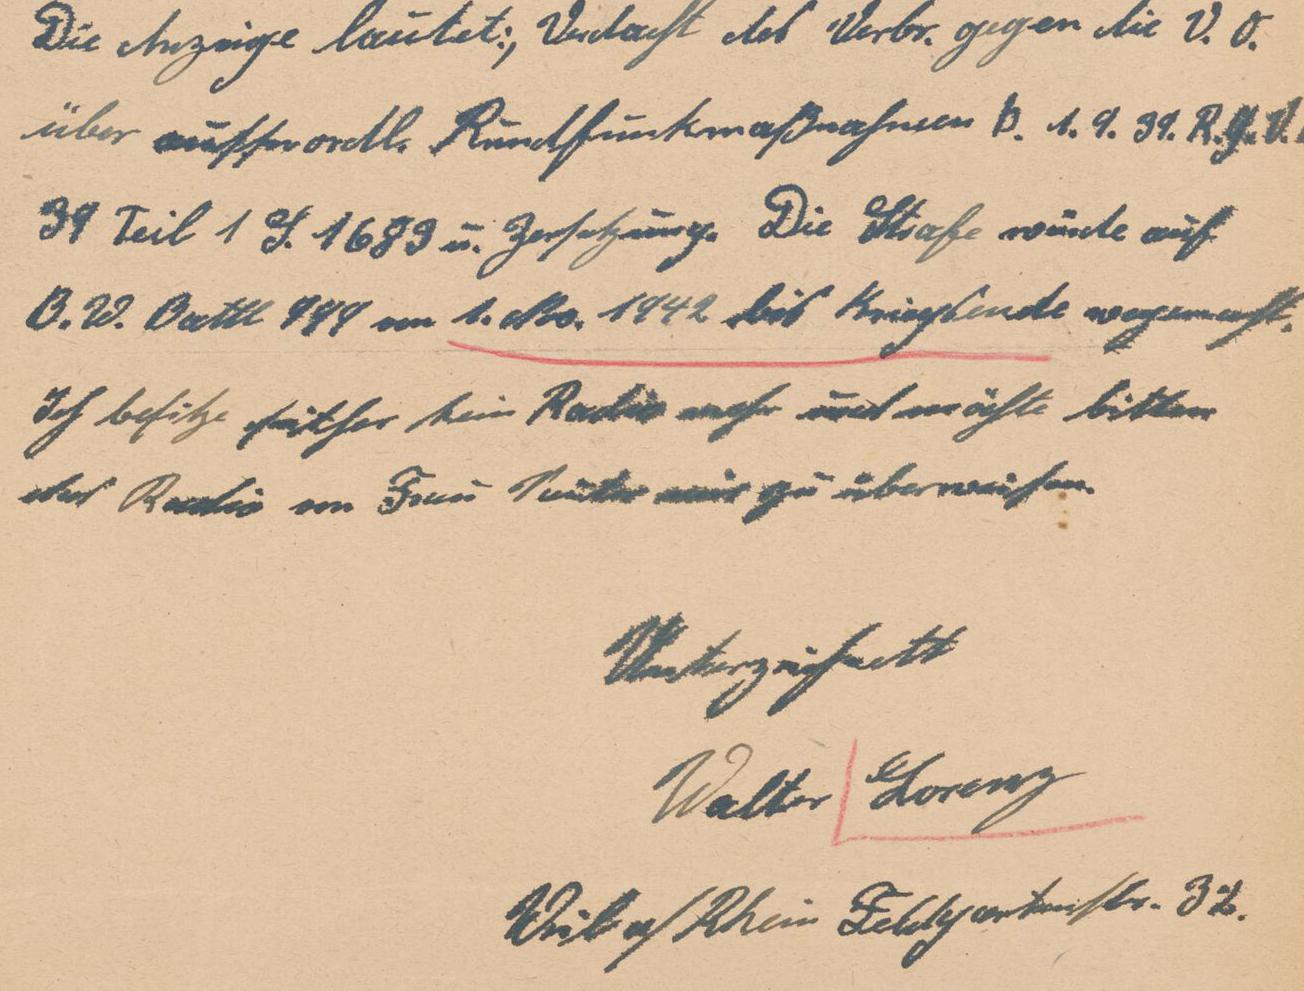 Die Anzeige lautet:, Verdacht des Verbr. gegen die V. O.
über ausserordl. Rundfunkmaßnahmen v. 1. 9. 39. R.G.Bl.
39 Teil 1 S. 1683 u. Zersetzung. Die Strafe wurde auf
B.W. Battl 999 vom 1. Okto. 1942 bis Kriegsende
Ich besitze seither kein Radio mehr und möchte bitten
das Radio von Frau mir zu überweisen.
Unterzeichnett
Walter Lorenz
Weil a/Rhein Feldgartenstr. 32.